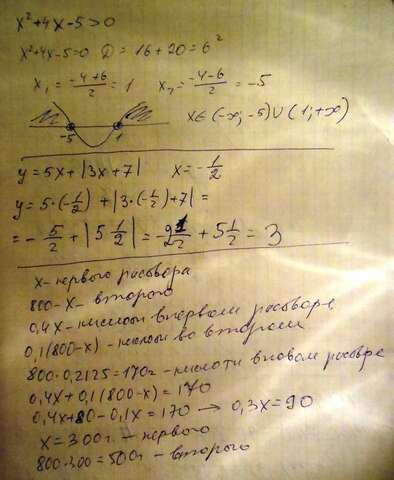 x²+4x-5>0
x²+4x-5=0 D=16+20=6²
x₁=(-4+6)/2=1 x₂=(-4-6)/2=-5
-5 1 x∈(-∞;-5)∪(1;+∞)
y=5x+|3x+7| x=-1/2
y=5·(-1/2)+|3·(-1/2)+7|=
=-5/2+|5 1/2|=-2 1/2+5 1/2=3
x- первого раствора
800-x- второго
0,4x-кислоты в первом растворе
0,1(800-x)-кислоты во втором
800·0,2125=170г-кислоты в новом растворе
0,4x+0,1(800-x)=170
0,4x+80-0,1x=170 → 0,3x=90
x=300г.-первого
800-300=500г-второго